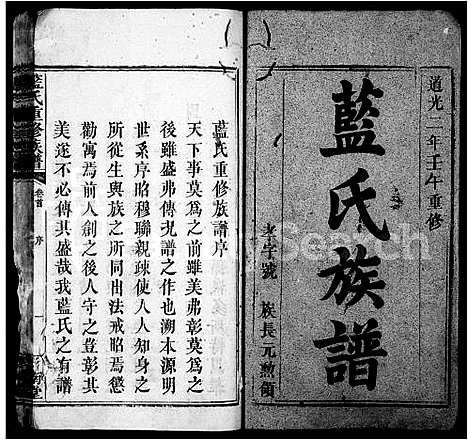 道光二年壬午重修
藍氏族譜
孝字號 族長元勲領
藍氏重修族譜序
天下事莫爲之前雖美弗彰莫爲之
後雖盛弗傳況譜之作也溯本源明
世系序昭穆聯親疎使人人知身之
所從生與族之所同出法戒昭焉懲
勸寓焉前人創之後人守之豈彰其
美遂不必傳其盛哉我藍氏之有譜
藍氏重修族譜
卷首
序
一
Search